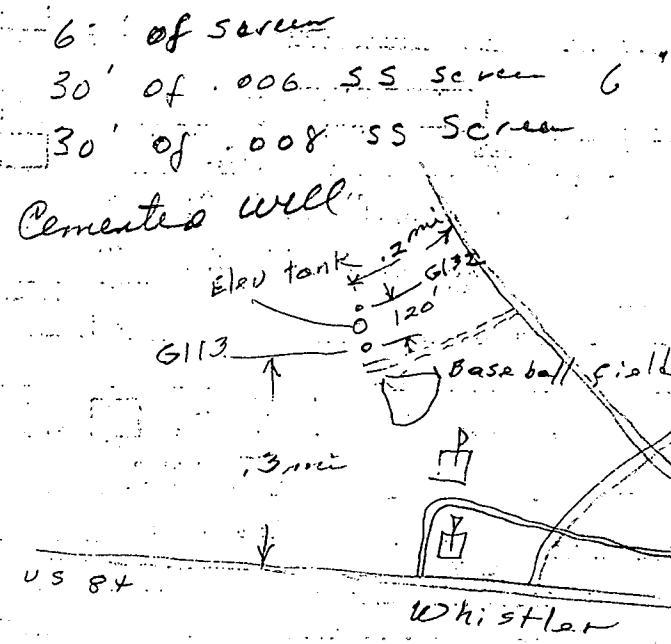 6' of screen
30' of .006 SS screen 6"
30' of .008 SS Screen
Cemented well
.2 mi
Elev tank
G132
120'
G113
Baseball field
.3 mi
US 84
Whistler